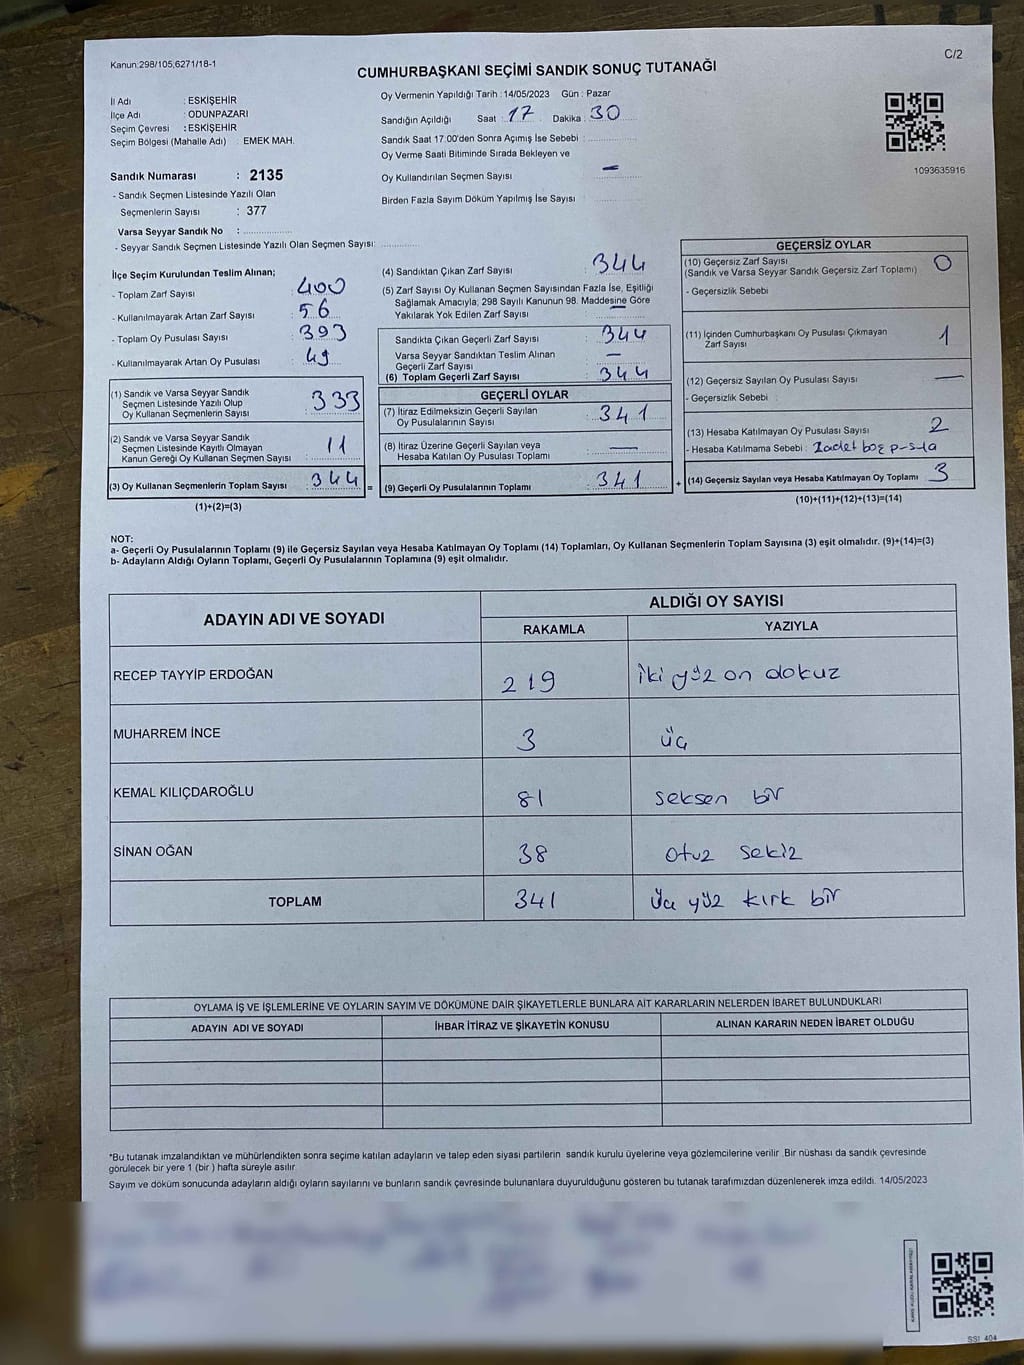 Kanun:298/105,6271/18-1
C/2
CUMHURBAŞKANI SEÇİMİ SANDIK SONUÇ TUTANAĞI
İl Adı : ESKİŞEHİR
İlçe Adı : ODUNPAZARI
Seçim Çevresi : ESKİŞEHİR
Seçim Bölgesi (Mahalle Adı) : EMEK MAH.
Sandık Numarası : 2135
- Sandık Seçmen Listesinde Yazılı Olan
Seçmenlerin Sayısı : 377
Varsa Seyyar Sandık No :
- Seyyar Sandık Seçmen Listesinde Yazılı Olan Seçmen Sayısı:
Oy Vermenin Yapıldığı Tarih : 14/05/2023 Gün : Pazar
Sandığın Açıldığı Saat : 17 Dakika : 30
Sandık Saat 17:00'den Sonra Açımış İse Sebebi :
Oy Verme Saati Bitiminde Sırada Bekleyen ve
Oy Kullandırılan Seçmen Sayısı : —
Birden Fazla Sayım Döküm Yapılmış İse Sayısı :
1093635916
İlçe Seçim Kurulundan Teslim Alınan;
- Toplam Zarf Sayısı : 400
- Kullanılmayarak Artan Zarf Sayısı : 56
- Toplam Oy Pusulası Sayısı : 393
- Kullanılmayarak Artan Oy Pusulası : 49
(1) Sandık ve Varsa Seyyar Sandık
Seçmen Listesinde Yazılı Olup
Oy Kullanan Seçmenlerin Sayısı : 333
(2) Sandık ve Varsa Seyyar Sandık
Seçmen Listesinde Kayıtlı Olmayan
Kanun Gereği Oy Kullanan Seçmen Sayısı : 11
(3) Oy Kullanan Seçmenlerin Toplam Sayısı : 344 =
(1)+(2)=(3)
(4) Sandıktan Çıkan Zarf Sayısı : 344
(5) Zarf Sayısı Oy Kullanan Seçmen Sayısından Fazla İse, Eşitliği
Sağlamak Amacıyla; 298 Sayılı Kanunun 98. Maddesine Göre
Yakılarak Yok Edilen Zarf Sayısı : —
Sandıkta Çıkan Geçerli Zarf Sayısı : 344
Varsa Seyyar Sandıktan Teslim Alınan
Geçerli Zarf Sayısı : —
(6) Toplam Geçerli Zarf Sayısı : 344
GEÇERLİ OYLAR
(7) İtiraz Edilmeksizin Geçerli Sayılan
Oy Pusulalarının Sayısı : 341
(8) İtiraz Üzerine Geçerli Sayılan veya
Hesaba Katılan Oy Pusulası Toplamı : —
(9) Geçerli Oy Pusulalarının Toplamı : 341 +
GEÇERSİZ OYLAR
(10) Geçersiz Zarf Sayısı : 0
(Sandık ve Varsa Seyyar Sandık Geçersiz Zarf Toplamı)
- Geçersizlik Sebebi :
(11) İçinden Cumhurbaşkanı Oy Pusulası Çıkmayan
Zarf Sayısı : 1
(12) Geçersiz Sayılan Oy Pusulası Sayısı : —
- Geçersizlik Sebebi :
(13) Hesaba Katılmayan Oy Pusulası Sayısı : 2
- Hesaba Katılmama Sebebi : 2 adet boş
(14) Geçersiz Sayılan veya Hesaba Katılmayan Oy Toplamı : 3
(10)+(11)+(12)+(13)=(14)
NOT:
a- Geçerli Oy Pusulalarının Toplamı (9) ile Geçersiz Sayılan veya Hesaba Katılmayan Oy Toplamı (14) Toplamları, Oy Kullanan Seçmenlerin Toplam Sayısına (3) eşit olmalıdır. (9)+(14)=(3)
b- Adayların Aldığı Oyların Toplamı, Geçerli Oy Pusulalarının Toplamına (9) eşit olmalıdır.
ADAYIN ADI VE SOYADI
ALDIĞI OY SAYISI
RAKAMLA YAZIYLA
RECEP TAYYİP ERDOĞAN 219 iki yüz on dokuz
MUHARREM İNCE 3 üç
KEMAL KILIÇDAROĞLU 81 seksen bir
SİNAN OĞAN 38 otuz sekiz
TOPLAM 341 Üç yüz kırk bir
OYLAMA İŞ VE İŞLEMLERİNE VE OYLARIN SAYIM VE DÖKÜMÜNE DAİR ŞİKAYETLERLE BUNLARA AİT KARARLARIN NELERDEN İBARET BULUNDUKLARI
ADAYIN ADI VE SOYADI İHBAR İTİRAZ VE ŞİKAYETİN KONUSU ALINAN KARARIN NEDEN İBARET OLDUĞU
*Bu tutanak imzalandıktan ve mühürlendikten sonra seçime katılan adayların ve talep eden siyasi partilerin sandık kurulu üyelerine veya gözlemcilerine verilir .Bir nüshası da sandık çevresinde
görülecek bir yere 1 (bir ) hafta süreyle asılır.
Sayım ve döküm sonucunda adayların aldığı oyların sayılarını ve bunların sandık çevresinde bulunanlara duyurulduğunu gösteren bu tutanak tarafımızdan düzenlenerek imza edildi. 14/05/2023
SSI 404